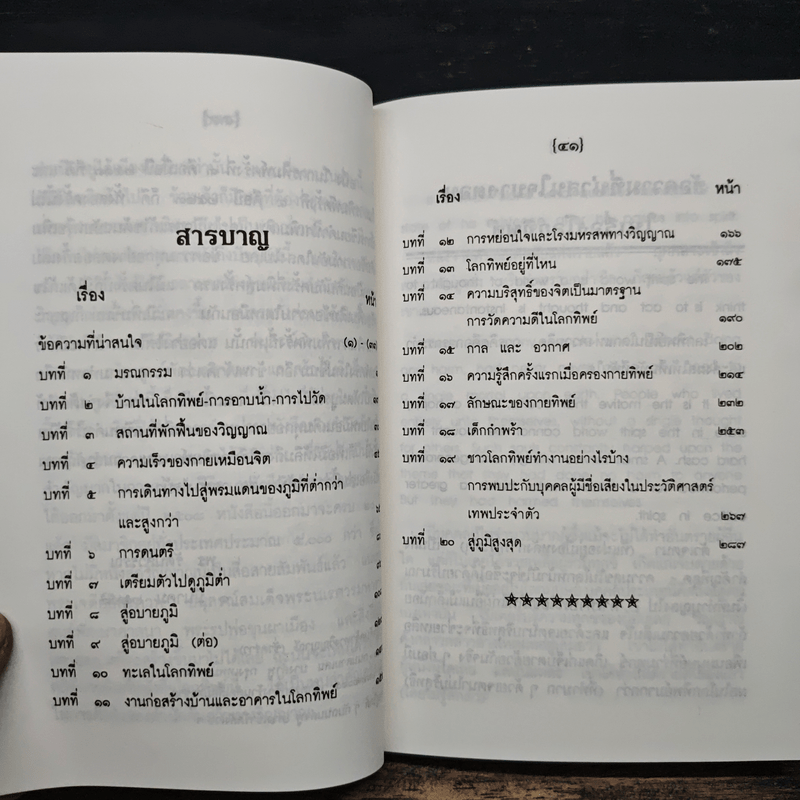 สารบาญ
เรื่อง หน้า
ข้อความที่น่าสนใจ
บทที่ ๑ มรณกรรม
บทที่ ๒ บ้านในโลกทิพย์-การอาบน้ำ-การไปวัด
บทที่ ๓ สถานที่พักฟื้นของวิญญาณ
บทที่ ๔ ความเร็วของกายเหมือนจิต
บทที่ ๕ การเดินทางไปสู่พรมแดนของภูมิที่ต่ำกว่า
และสูงกว่า
บทที่ ๖ การดนตรี
บทที่ ๗ เตรียมตัวไปดูภูมิต่ำ
บทที่ ๘ สู่อบายภูมิ
บทที่ ๙ สู่อบายภูมิ (ต่อ)
บทที่ ๑๐ ทะเลในโลกทิพย์
บทที่ ๑๑ งานก่อสร้างบ้านและอาคารในโลกทิพย์
{๔๑}
เรื่อง หน้า
บทที่ ๑๒ การหย่อนใจและโรงมหรสพทางวิญญาณ ๑๖๖
บทที่ ๑๓ โลกทิพย์อยู่ที่ไหน ๑๗๕
บทที่ ๑๔ ความบริสุทธิ์ของจิตเป็นมาตรฐาน
การวัดความดีในโลกทิพย์ ๑๙๐
บทที่ ๑๕ กาล และ อวกาศ ๒๐๒
บทที่ ๑๖ ความรู้สึกครั้งแรกเมื่อครองกายทิพย์ ๒๑๔
บทที่ ๑๗ ลักษณะของกายทิพย์ ๒๓๒
บทที่ ๑๘ เด็กกำพร้า ๒๕๓
บทที่ ๑๙ ชาวโลกทิพย์ทำงานอย่างไรบ้าง
การพบปะกับบุคคลผู้มีชื่อเสียงในประวัติศาสตร์
เทพประจำตัว ๒๖๗
บทที่ ๒๐ สู่ภูมิสูงสุด ๒๘๗